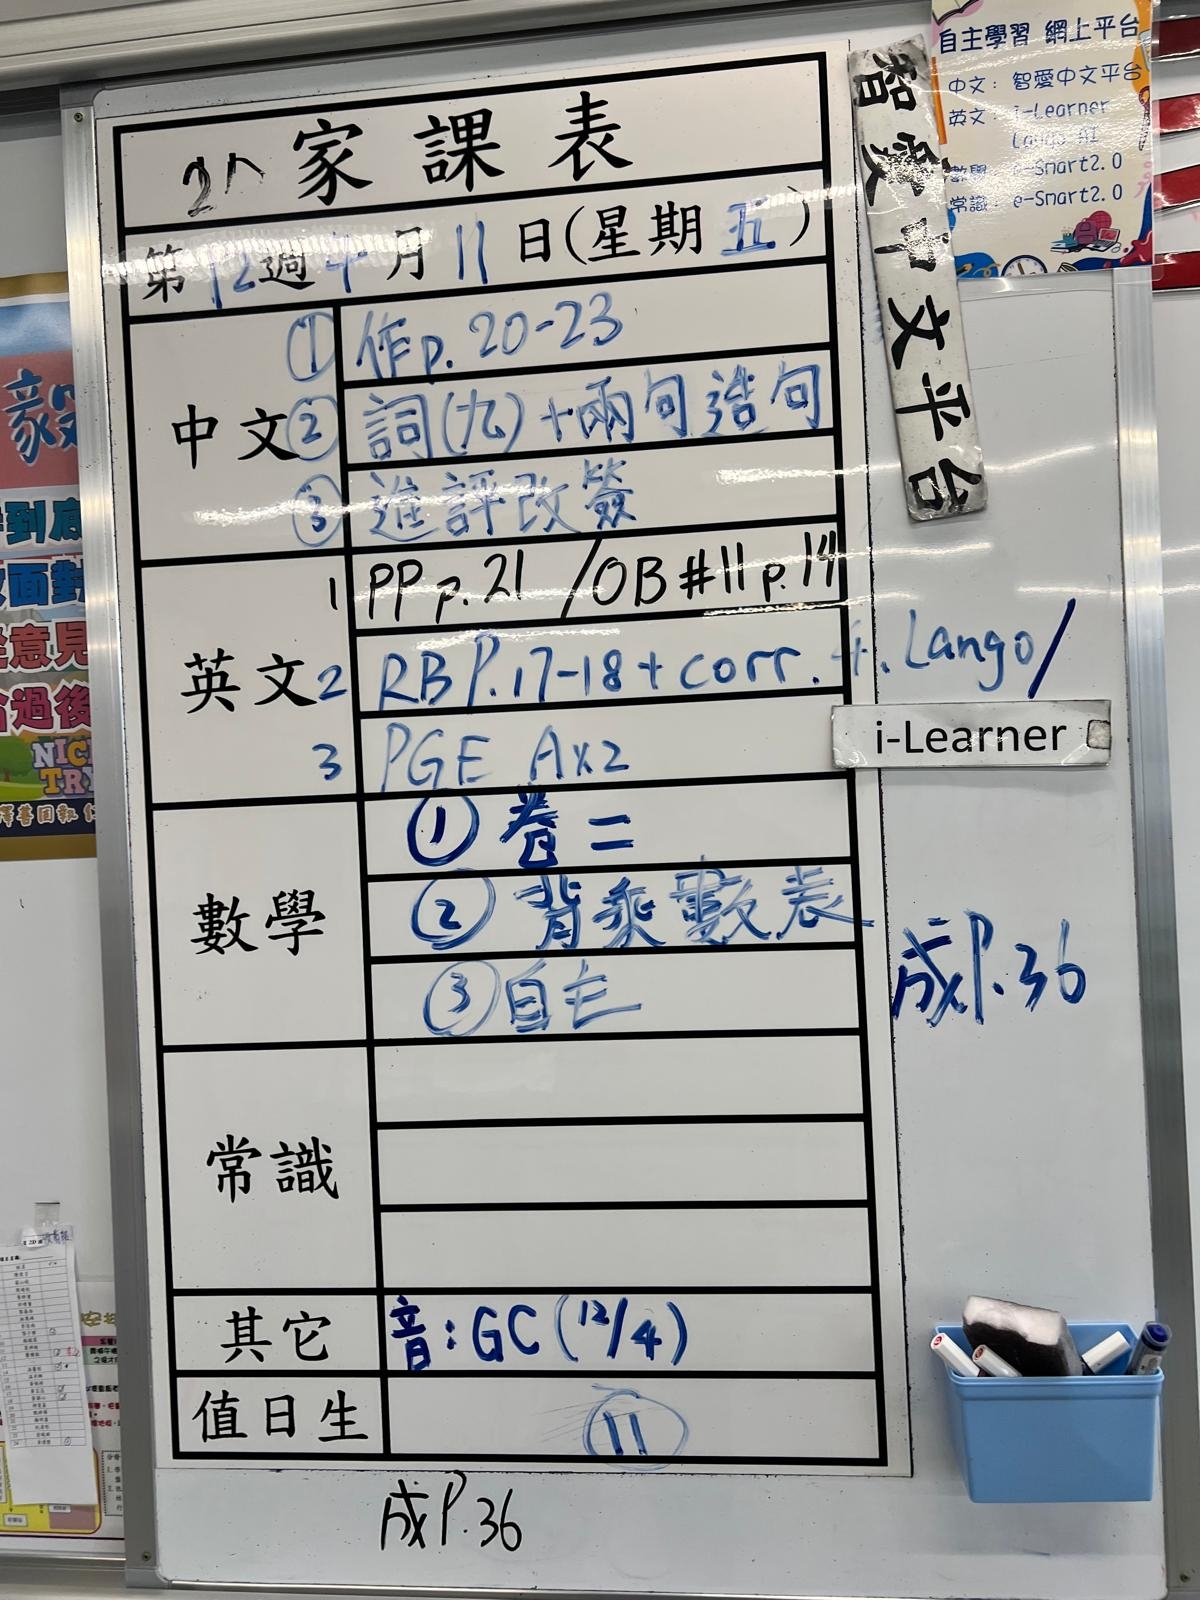 家課表
第12週4月11日(星期五)
中文
① 作p. 20-23
② 詞(九)+兩句造句
③ 進評改簽
英文
1 PP p.21 /OB #11 p.14
2 RB P.17-18 + corr.
3 PGE Ax2
4. Lango/
i-Learner
數學
① 卷二
② 背乘數表
③ 自主
成P.36
常識
其它
音:GC(12/4)
值日生
11
成P.36
智愛中文平台
自主學習 網上平台
中文: 智愛中文平台
英文: i-Learner
Lango AI
數學: e-Smart2.0
常識: e-Smart2.0
到底
面對
意見
過後
NIC
TRY